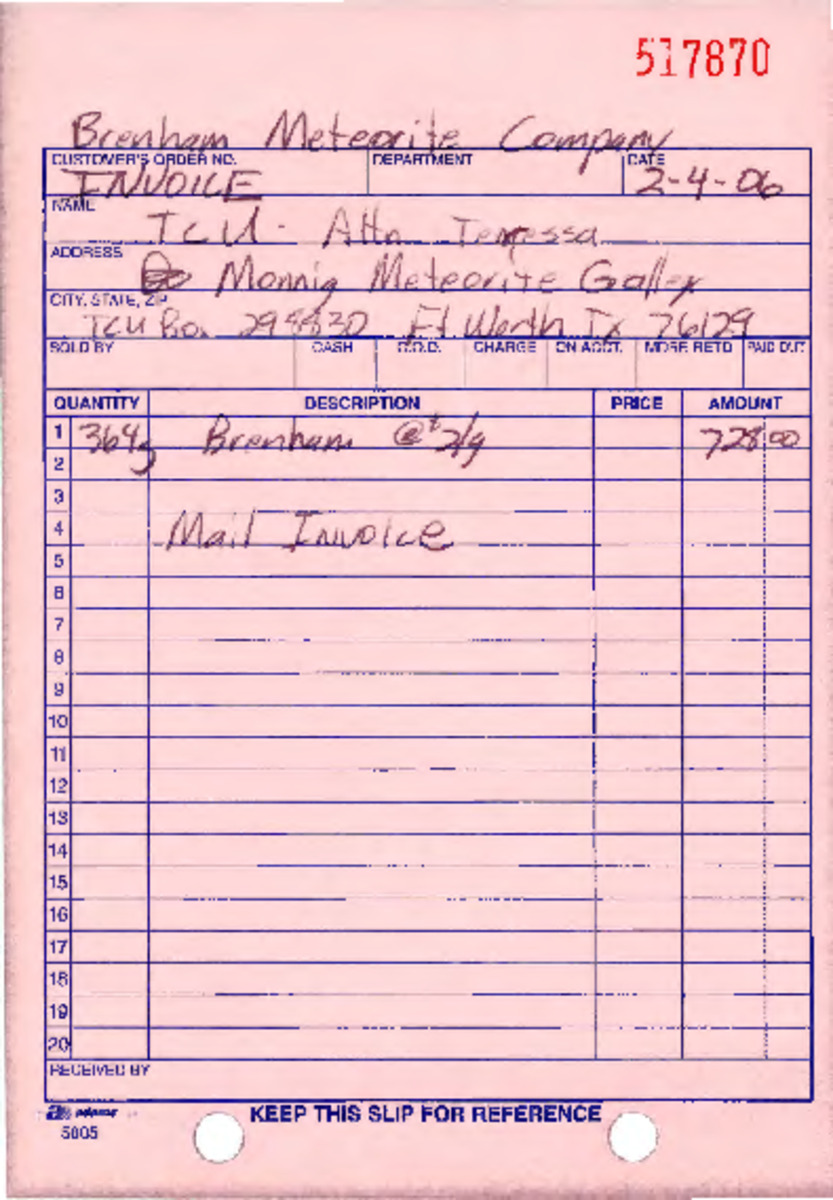 517870
Brenham Meteorite Company
CUSTOMER'S ORDER NO. DEPARTMENT DATE
INVOICE 2-4-06
NAME
TCU - Attn
ADDRESS
Monnig Meteorite Gallery
CITY, STATE, ZIP
TCU Box 298830 Ft Worth Tx 76129
SOLD BY CASH C.O.D. CHARGE ON ACCT. MDSE RETD PAID OUT
QUANTITY DESCRIPTION PRICE AMOUNT
1 364g Brenham @ $2/g 728 00
2
3
4 Mail Invoice
5
6
7
8
9
10
11
12
13
14
15
16
17
18
19
20
RECEIVED BY
adams
KEEP THIS SLIP FOR REFERENCE
5805